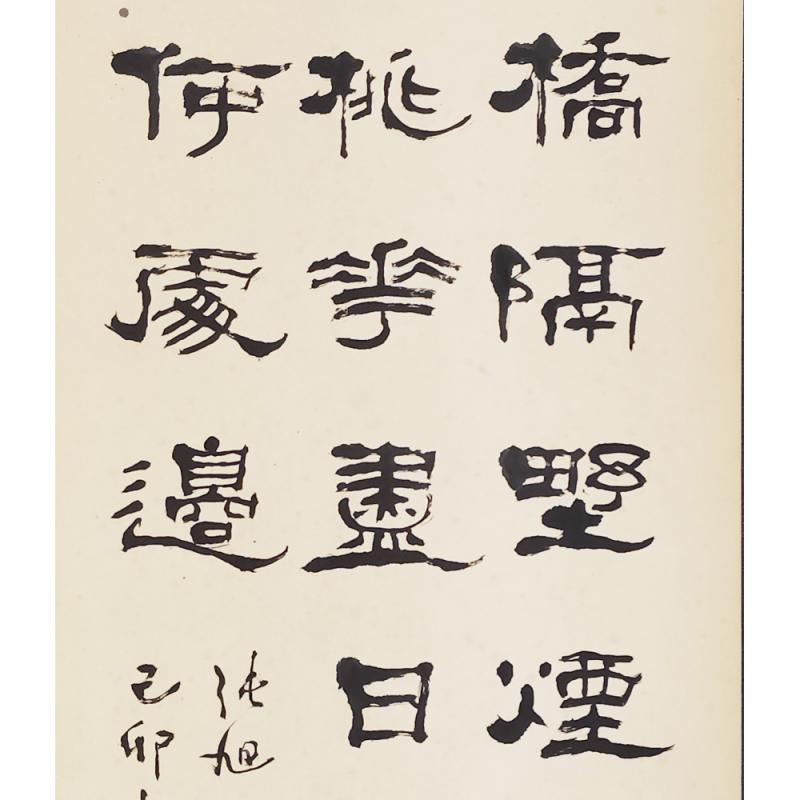 橋隔野煙
桃花盡日
何處邊
張旭
己卯